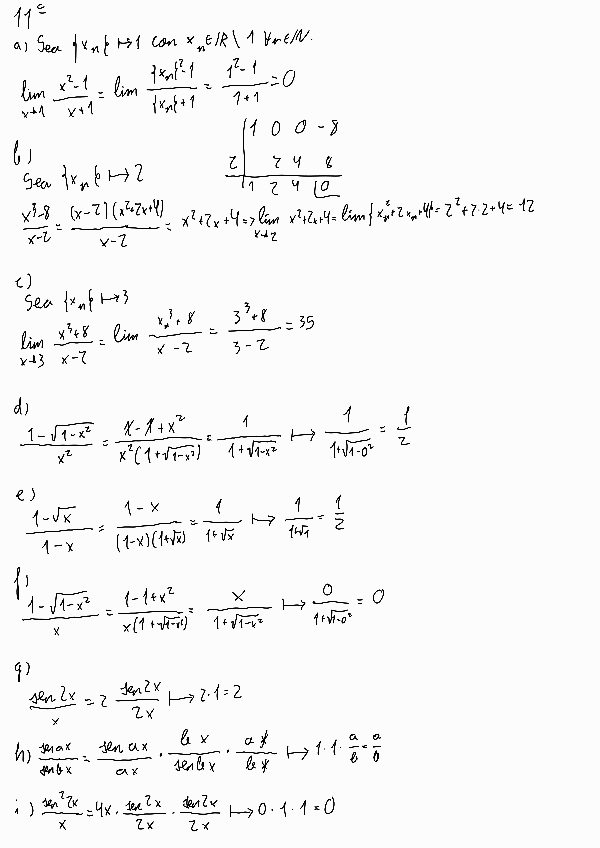 11º
a) Sea {xₙ} ↦ 1 con xₙ ∈ ℝ \ 1 ∀n∈ℕ.
lim_{x→1} (x²-1)/(x+1) = lim ({xₙ}²-1)/({xₙ}+1) = (1²-1)/(1+1) = 0
b)
1 0 0 -8
2 2 4 8
1 2 4 0
Sea {xₙ} ↦ 2
(x³-8)/(x-2) = (x-2)(x²+2x+4)/(x-2) = x²+2x+4 => lim_{x→2} x²+2x+4 = lim{xₙ²+2xₙ+4} = 2²+2·2+4 = 12
c)
Sea {xₙ} ↦ 3
lim_{x→3} (x³+8)/(x-2) = lim (xₙ³+8)/(x-2) = (3³+8)/(3-2) = 35
d)
(1-√(1-x²))/x² = (1-1+x²)/(x²(1+√(1-x²))) = 1/(1+√(1-x²)) ↦ 1/(1+√(1-0²)) = 1/2
e)
(1-√x)/(1-x) = (1-x)/((1-x)(1+√x)) = 1/(1+√x) ↦ 1/(1+√1) = 1/2
f)
(1-√(1-x²))/x = (1-1+x²)/(x(1+√(1-x²))) = x/(1+√(1-x²)) ↦ 0/(1+√(1-0²)) = 0
g)
sen2x/x = 2 sen2x/2x ↦ 2·1 = 2
h) senax/senbx = senax/ax · bx/senbx · ax/bx ↦ 1·1·a/b = a/b
i) sen²2x/x = 4x · sen2x/2x · sen2x/2x ↦ 0·1·1 = 0